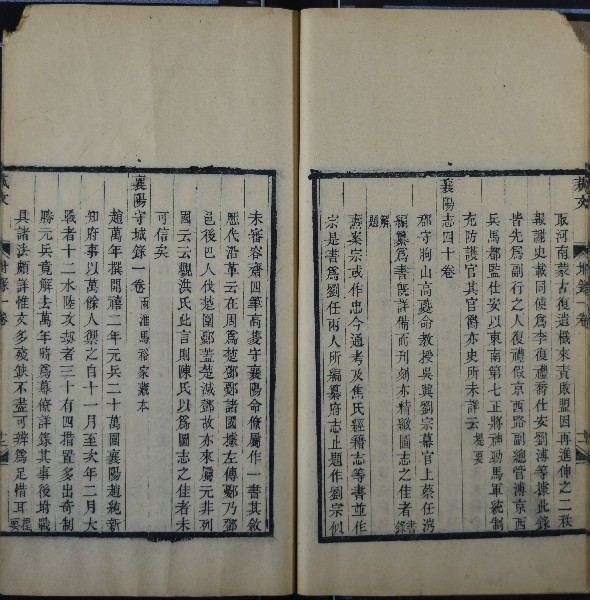 藝文
附錄一卷
取河南蒙古復遣檝來責敗盟因再進伸之二秩
報謝史載同使爲李復禮喬仕安劉溥等據此錄
皆先爲副行之人復禮假京西路副總管溥京西
兵馬都監仕安以東南第七正將神勁馬軍統制
充防護官其官爵亦史所未詳云提要
襄陽志四十卷
郡守朐山高夔命教授吳興劉宗幕官上蔡任浻
編纂爲書既詳備而刊刻亦精緻圖志之佳者書錄
解題
謹案宗或作忠今通考及焦氏經籍志等書並作
宗是書爲劉任兩人所編纂府志止題作劉宗似
未審容齋四筆高夔守襄陽命僚屬作一書其敘
歷代沿革云在周爲楚鄾鄧諸國據左傳鄾乃鄧
邑後巴人伐楚圍鄾蓋楚滅鄧故亦來屬元非列
國云云觀洪氏此言則陳氏以爲圖志之佳者未
可信矣
襄陽守城錄一卷兩淮馬裕家藏本
趙萬年撰開禧二年元兵二十萬圍襄陽趙統新
知府事以萬餘人禦之自十一月至次年二月大
戰者十二水陸攻刼者三十有四措置多出奇制
勝元兵竟解去萬年時爲幕僚詳錄其事後坿戰
具諸法頗詳惟文多殘缺不盡可辨爲足惜耳提要
藝文
附錄一卷